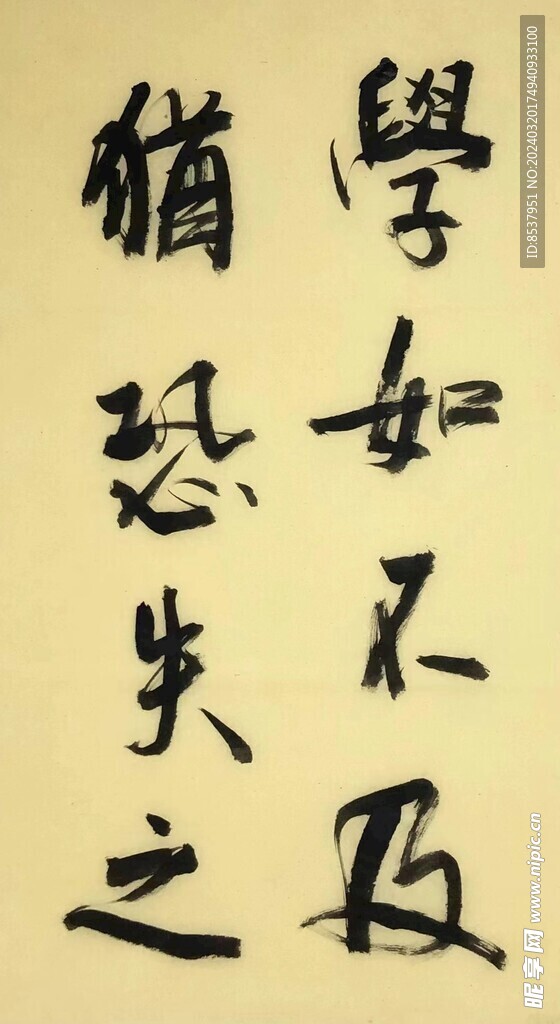 學如不及
猶恐失之
ID:8537951 NO:20240320174940933100
昵享网 www.nipic.cn